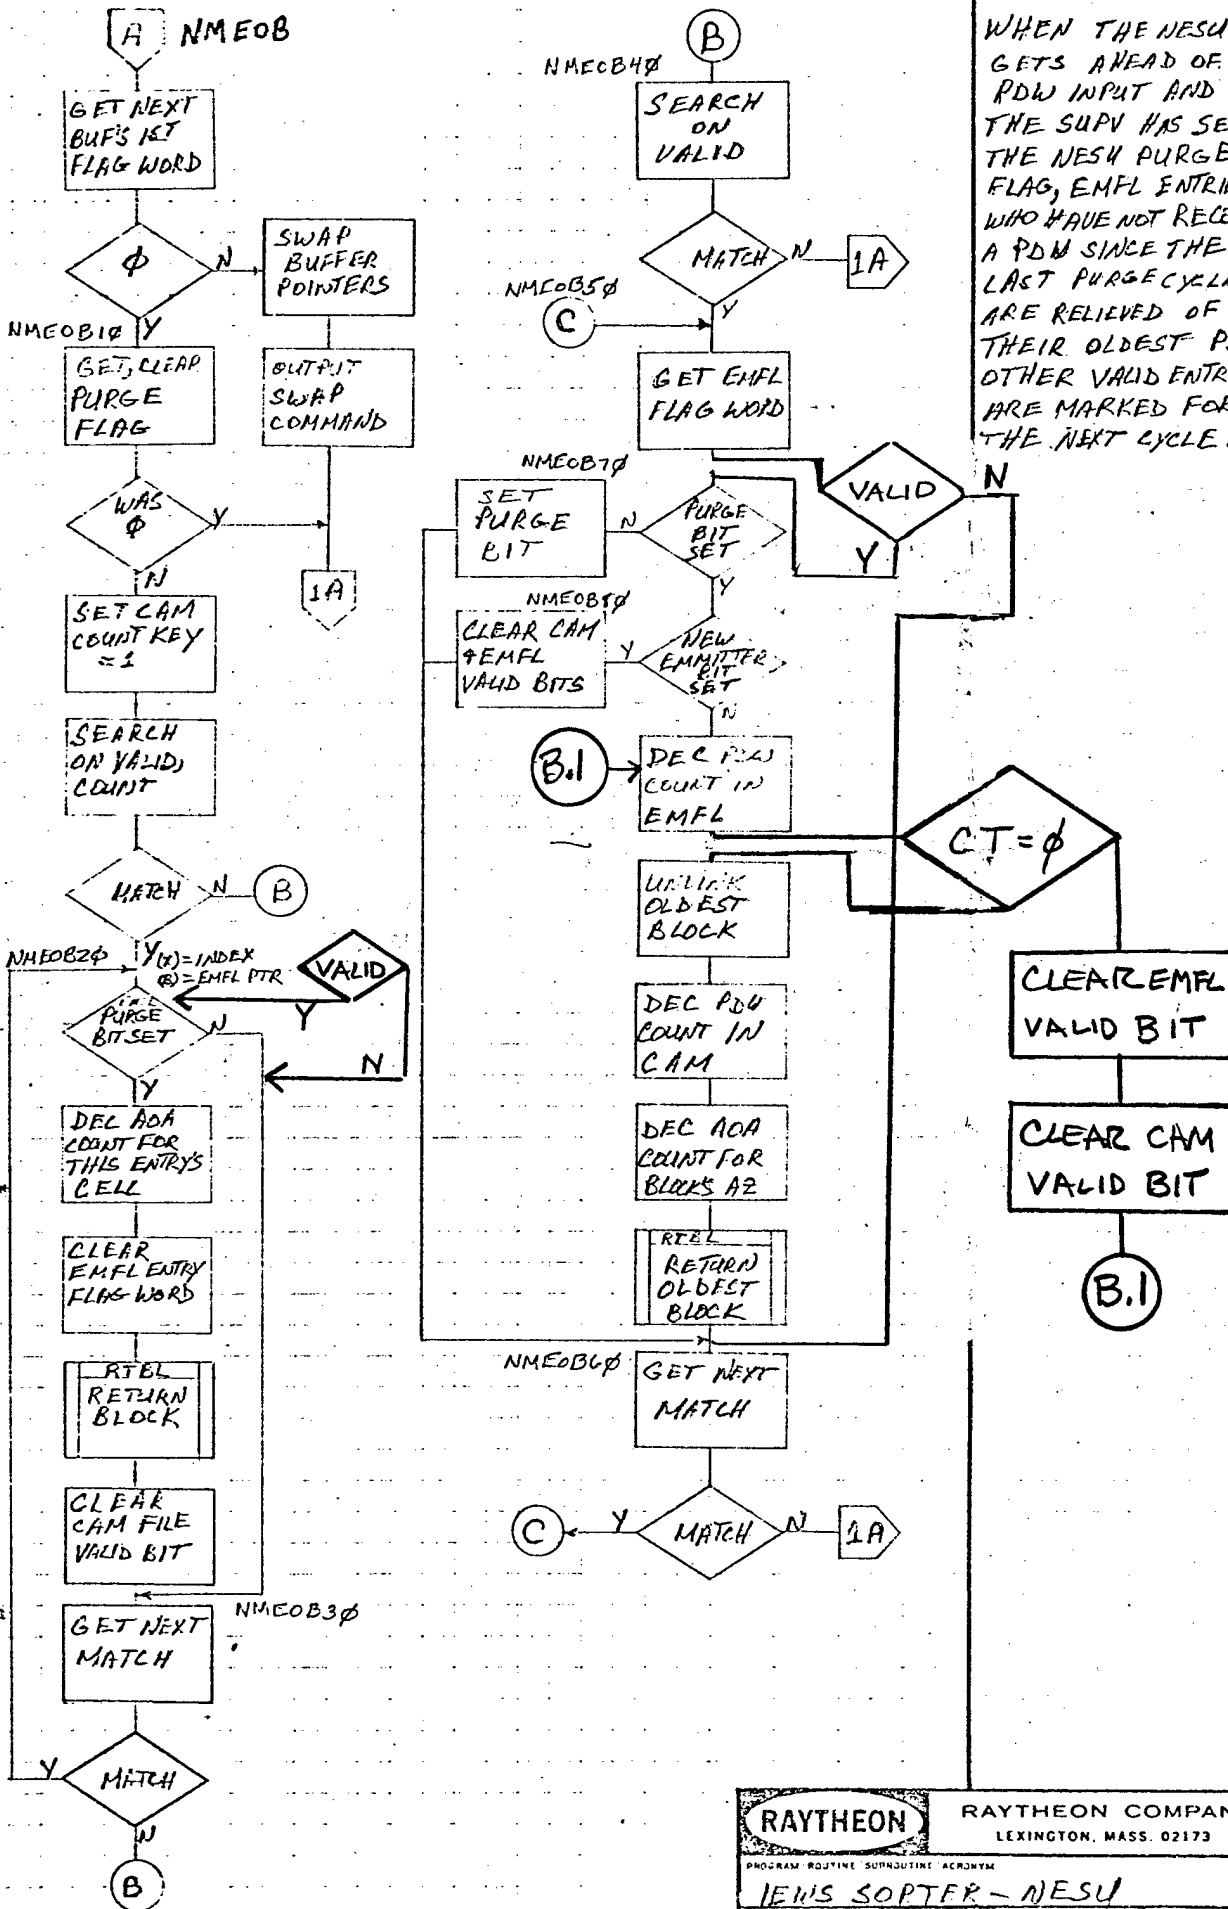 A NMEOB
GET NEXT
BUF'S 1ST
FLAG WORD
φ
N
SWAP
BUFFER
POINTERS
NMEOB1φ
Y
GET, CLEAR
PURGE
FLAG
OUTPUT
SWAP
COMMAND
WAS
φ
Y
N
1A
SET CAM
COUNT KEY
= 1
SEARCH
ON VALID,
COUNT
MATCH
N
B
NMEOB2φ
Y (X)=INDEX
(B)=EMFL PTR
VALID
Y
N
PURGE
BIT SET
N
Y
DEC AOA
COUNT FOR
THIS ENTRY'S
CELL
CLEAR
EMFL ENTRY
FLAG WORD
RTBL
RETURN
BLOCK
CLEAR
CAM FILE
VALID BIT
NMEOB3φ
GET NEXT
MATCH
Y
MATCH
N
B
B
NMEOB4φ
SEARCH
ON
VALID
MATCH
N
1A
NMEOB5φ
Y
C
GET EMFL
FLAG WORD
VALID
N
Y
NMEOB7φ
SET
PURGE
BIT
N
PURGE
BIT
SET
Y
NMEOB8φ
CLEAR CAM
& EMFL
VALID BITS
Y
NEW
EMMITTER
BIT
SET
N
B.1
DEC PDW
COUNT IN
EMFL
CT=φ
UNLINK
OLDEST
BLOCK
DEC PDW
COUNT IN
CAM
DEC AOA
COUNT FOR
BLOCKS AZ
RTBL
RETURN
OLDEST
BLOCK
NMEOB6φ
GET NEXT
MATCH
C
Y
MATCH
N
1A
CLEAR EMFL
VALID BIT
CLEAR CAM
VALID BIT
B.1
WHEN THE NESU
GETS AHEAD OF
PDW INPUT AND
THE SUPV HAS SE
THE NESU PURGE
FLAG, EMFL ENTRIE
WHO HAVE NOT RECE
A PDW SINCE THE
LAST PURGE CYCLE
ARE RELIEVED OF
THEIR OLDEST P
OTHER VALID ENTR
ARE MARKED FOR
THE NEXT CYCLE.
RAYTHEON
RAYTHEON COMPAN
LEXINGTON, MASS. 02173
PROGRAM ROUTINE SUBROUTINE ACRONYM
IEWS SORTER - NESU